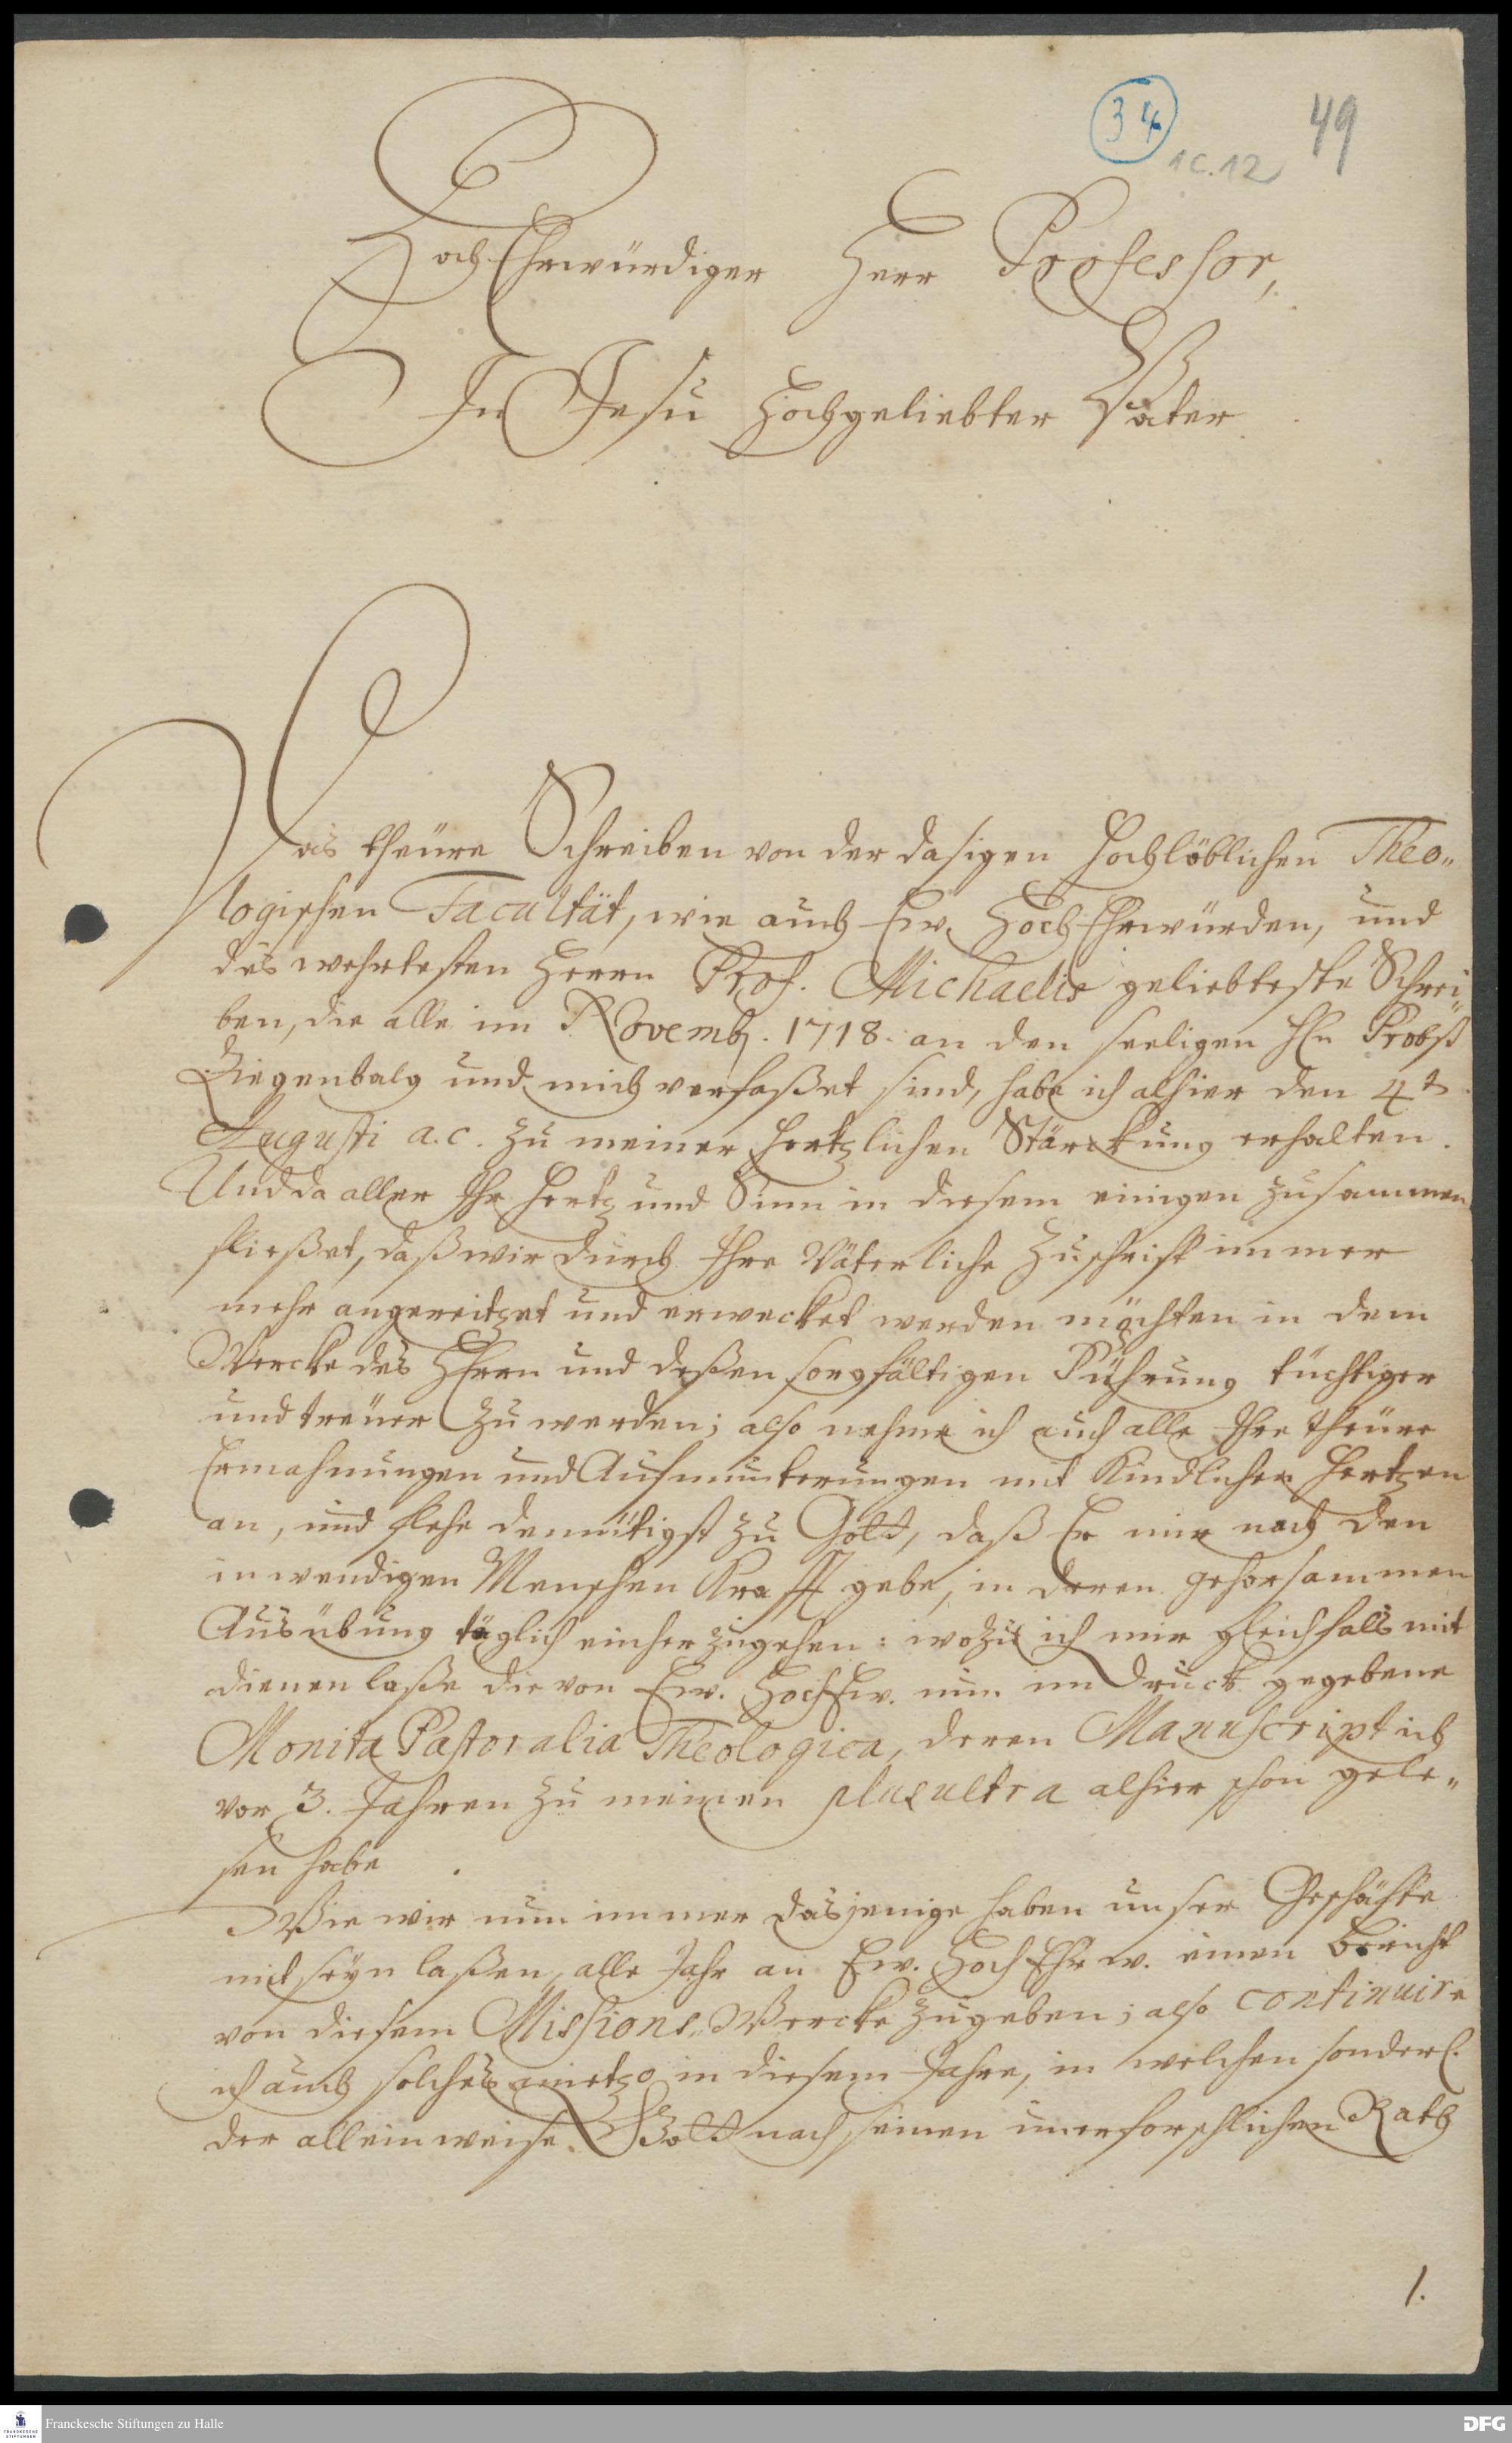 34
49
1 C. 12
HochEhrwürdiger Herr Professor,
In Jesu Hochgeliebter Vater
Das theure Schreiben von der dasigen Hochlöblichen Theo-
logischen Facultät, wie auch Ew. HochEhrwürden, und
des wehrtesten Herrn Prof. Michaelis geliebteste Schrei-
ben, die alle im Novembr. 1718. an den seeligen Hn Probst
Ziegenbalg und mich verfaßet sind, habe ich alhier den 4t
Augusti a.c. zu meiner Hertzlichen Stärckung erhalten.
Und da aller Ihr Hertz und Sinn in diesem einigen zusammen
fließet, daß wir durch Ihre Väterliche Zuschrifft immer
mehr angereitzet und erwecket werden möchten in dem
Wercke des HErrn und deßen sorgfältigen Führung tüchtiger
und treuer zu werden; also nehme ich auch alle Ihre theure
Ermahnungen und Aufmunterungen mit Kindlichen Hertzen
an, und flehe demütigst zu Gott, daß Er mir nach den
inwendigen Menschen Krafft gebe, in deren gehorsammen
Ausübung täglich einher zugehen: wozu ich mir gleichfalls mit
dienen laße die von Ew. HochEw. nun im Druck gegebene
Monita Pastoralia Theologica, deren Manuscript ich
vor 3. Jahren zu meinen plus ultra alhier schon gele-
sen habe.
Wie wir nun immer dasjenige haben unser Geschäfte
mit seyn laßen, alle Jahr an Ew. HochEhrw. einen Bericht
von diesem Missions-Wercke zugeben; also continuire
ich auch solches anietzo in diesem Jahre, in welchen sonderl.
der allein weise Gott nach seinen unerforschlichen Rath
1.
Franckesche Stiftungen zu Halle
DFG